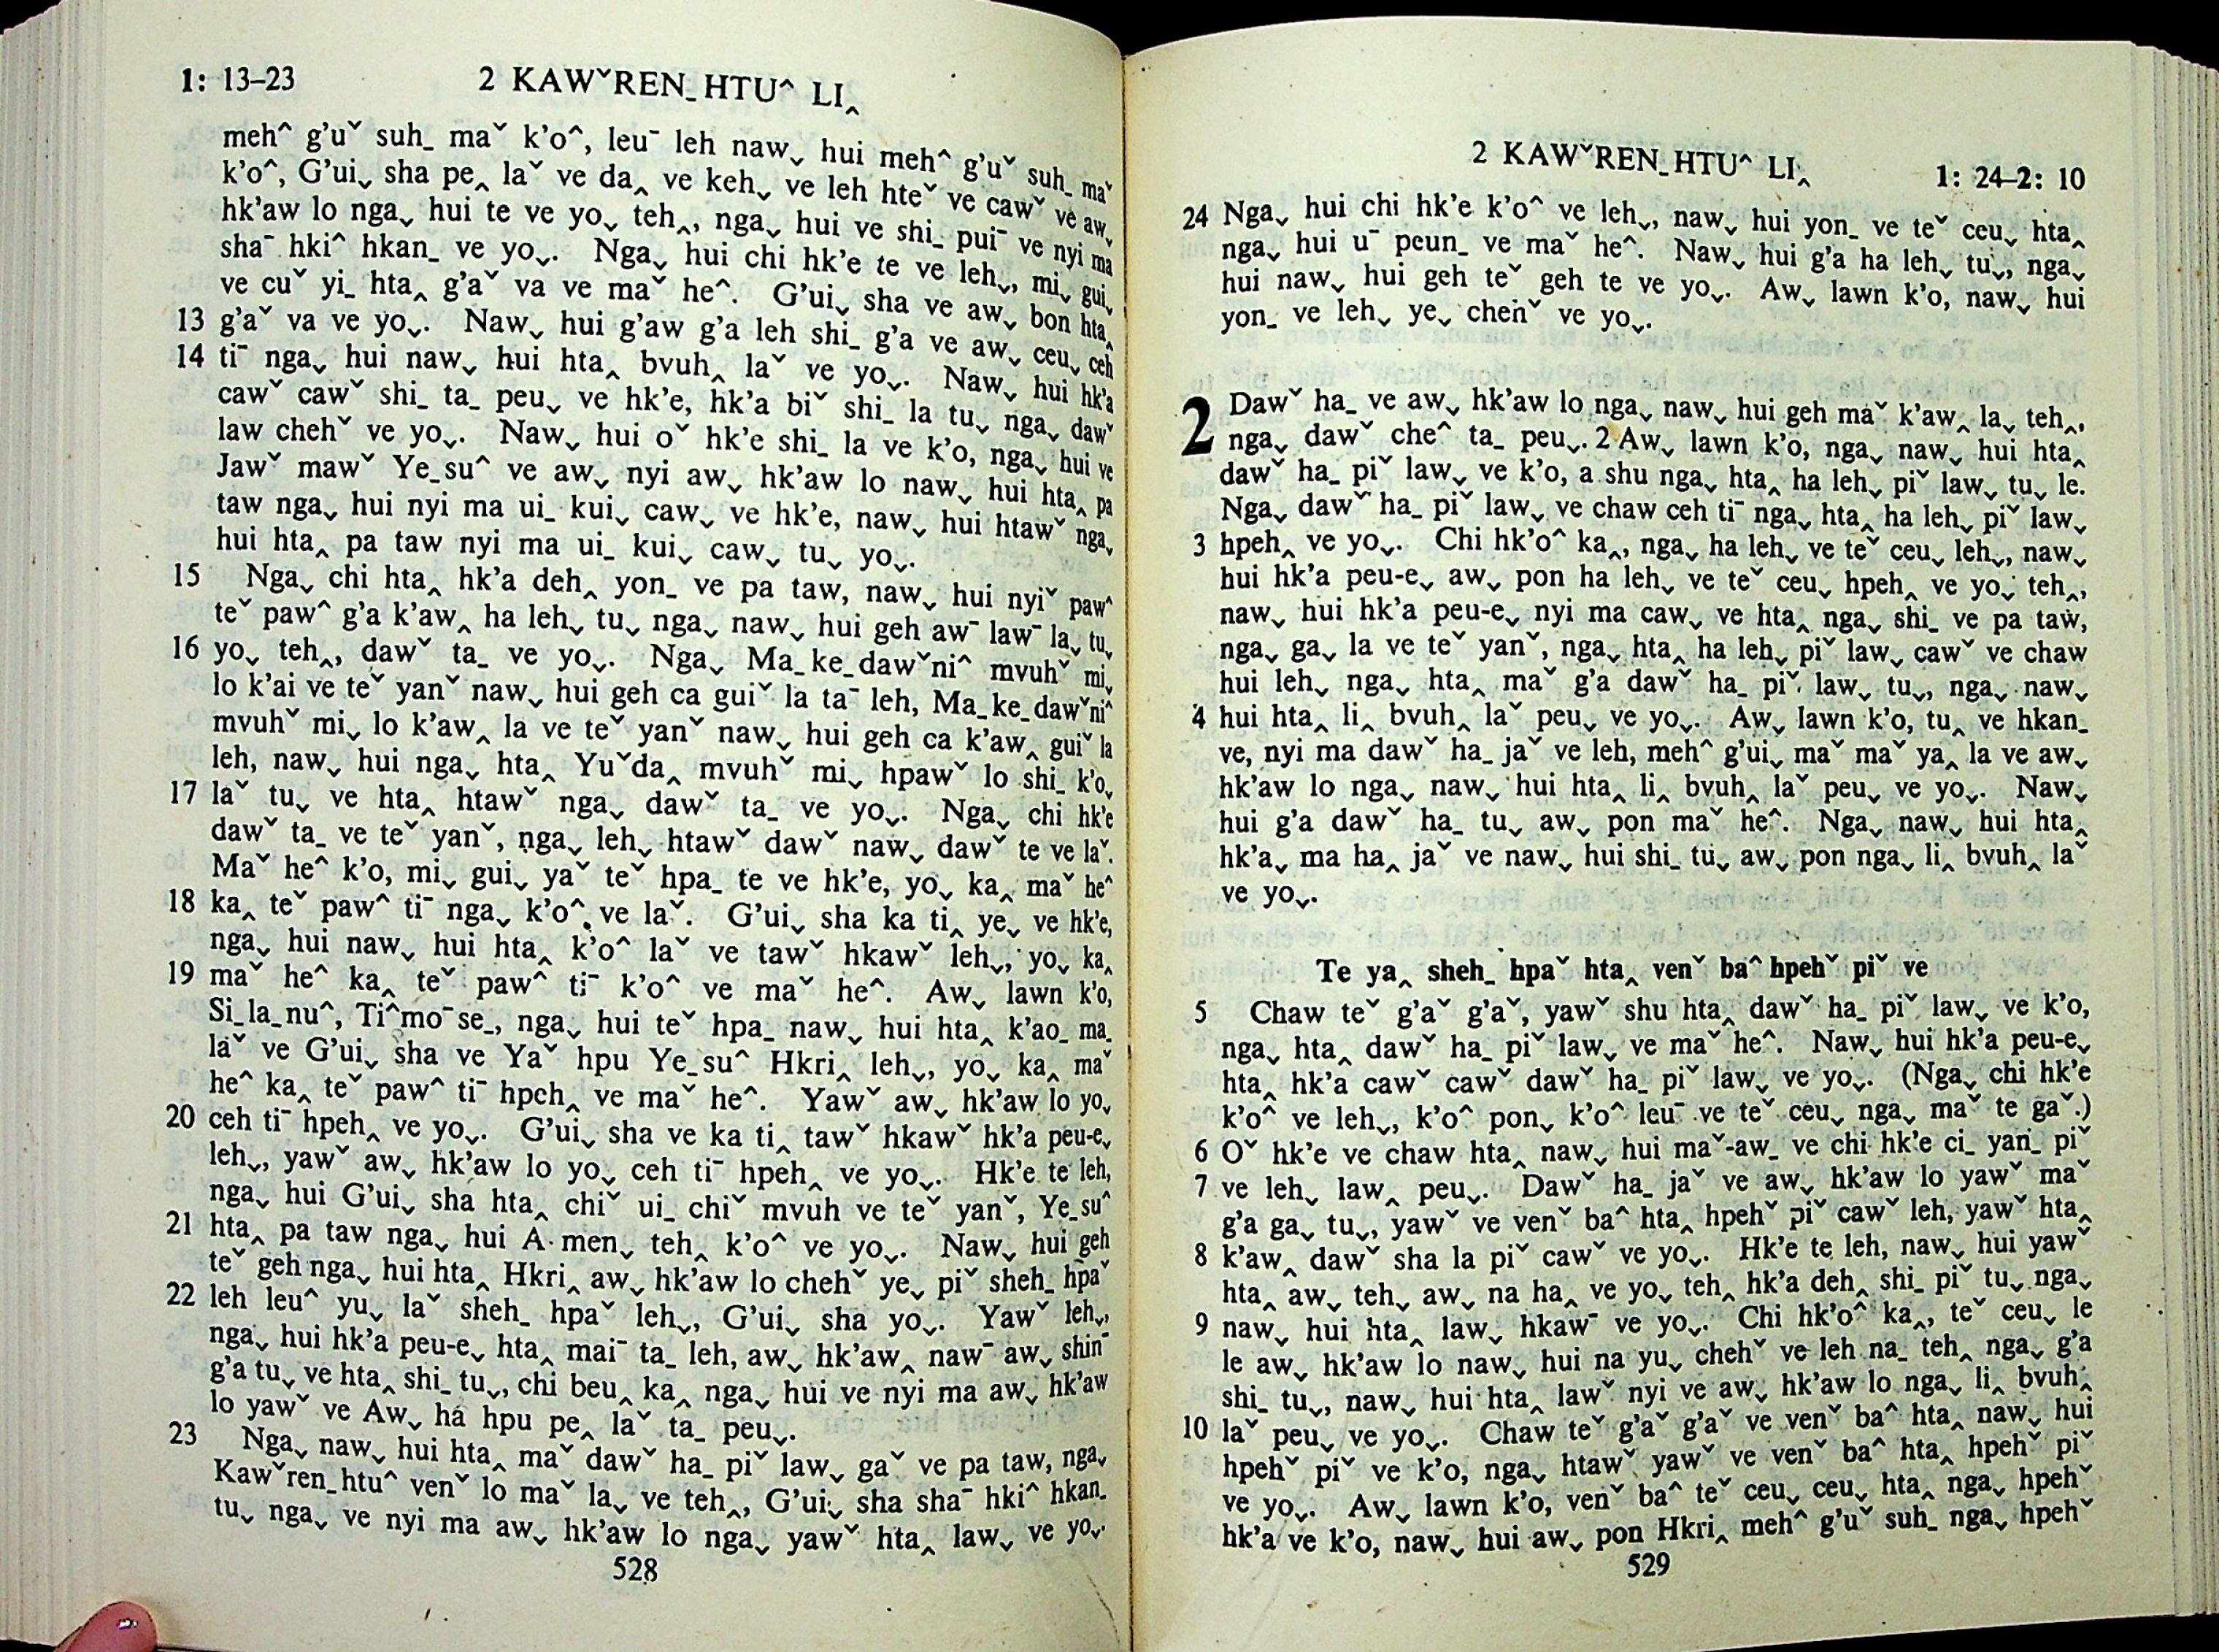 1: 13–23 2 KAWˇREN_HTU^ LI‸
meh^ g'uˇ suh_ maˇ k'o^, leu¯ leh naw⌄ hui meh^ g'uˇ suh_ maˇ
k'o^, G'ui⌄ sha pe‸ laˇ ve da‸ ve keh⌄ ve leh hteˇ ve cawˇ ve aw⌄
hk'aw lo nga⌄ hui te ve yo⌄ teh‸, nga⌄ hui ve shi_ pui¯ ve nyi ma
sha¯ hki^ hkan_ ve yo⌄. Nga⌄ hui chi hk'e te ve leh⌄, mi⌄ gui⌄
ve cuˇ yi_ hta‸ g'aˇ va ve maˇ he^. G'ui⌄ sha ve aw⌄ bon hta‸
13 g'aˇ va ve yo⌄. Naw⌄ hui g'aw g'a leh shi_ g'a ve aw⌄ ceu⌄ ceh
14 ti¯ nga⌄ hui naw⌄ hui hta‸ bvuh‸ laˇ ve yo⌄. Naw⌄ hui hk'a
cawˇ cawˇ shi_ ta_ peu⌄ ve hk'e, hk'a biˇ shi_ la tu⌄ nga⌄ dawˇ
law chehˇ ve yo⌄. Naw⌄ hui oˇ hk'e shi_ la ve k'o, nga⌄ hui ve
Jawˇ mawˇ Ye_su^ ve aw⌄ nyi aw⌄ hk'aw lo naw⌄ hui hta‸ pa
taw nga⌄ hui nyi ma ui_ kui⌄ caw⌄ ve hk'e, naw⌄ hui htawˇ nga⌄
hui hta‸ pa taw nyi ma ui_ kui⌄ caw⌄ tu⌄ yo⌄.
15 Nga⌄ chi hta‸ hk'a deh‸ yon_ ve pa taw, naw⌄ hui nyiˇ paw^
teˇ paw^ g'a k'aw‸ ha leh⌄ tu⌄ nga⌄ naw⌄ hui geh aw¯ law¯ la⌄ tu⌄
16 yo⌄ teh‸, dawˇ ta_ ve yo⌄. Nga⌄ Ma_ke_dawˇni^ mvuhˇ mi⌄
lo k'ai ve teˇ yanˇ naw⌄ hui geh ca guiˇ la ta¯ leh, Ma_ke_dawˇni^
mvuhˇ mi⌄ lo k'aw‸ la ve teˇ yanˇ naw⌄ hui geh ca k'aw‸ guiˇ la
leh, naw⌄ hui nga⌄ hta‸ Yuˇda‸ mvuhˇ mi⌄ hpawˇ lo shi_ k'o⌄
17 laˇ tu⌄ ve hta‸ htawˇ nga⌄ dawˇ ta_ ve yo⌄. Nga⌄ chi hk'e
dawˇ ta_ ve teˇ yanˇ, nga⌄ leh⌄ htawˇ dawˇ naw⌄ dawˇ te ve laˇ.
Maˇ he^ k'o, mi⌄ gui⌄ yaˇ teˇ hpa_ te ve hk'e, yo⌄ ka‸ maˇ he^
18 ka‸ teˇ paw^ ti¯ nga⌄ k'o^ ve laˇ. G'ui⌄ sha ka ti‸ ye⌄ ve hk'e,
nga⌄ hui naw⌄ hui hta‸ k'o^ laˇ ve tawˇ hkawˇ leh⌄, yo⌄ ka‸
19 maˇ he^ ka‸ teˇ paw^ ti¯ k'o^ ve maˇ he^. Aw⌄ lawn k'o,
Si_la_nu^, Ti^mo¯se_, nga⌄ hui teˇ hpa_ naw⌄ hui hta‸ k'ao_ ma_
laˇ ve G'ui⌄ sha ve Yaˇ hpu Ye_su^ Hkri‸ leh⌄, yo⌄ ka‸ maˇ
he^ ka‸ teˇ paw^ ti¯ hpeh‸ ve maˇ he^. Yawˇ aw⌄ hk'aw lo yo⌄
20 ceh ti¯ hpeh‸ ve yo⌄. G'ui⌄ sha ve ka ti‸ tawˇ hkawˇ hk'a peu-e⌄
leh⌄, yawˇ aw⌄ hk'aw lo yo⌄ ceh ti¯ hpeh‸ ve yo⌄. Hk'e te leh,
nga⌄ hui G'ui⌄ sha hta‸ chiˇ ui_ chiˇ mvuh ve teˇ yanˇ, Ye_su^
21 hta‸ pa taw nga⌄ hui A men⌄ teh‸ k'o^ ve yo⌄. Naw⌄ hui geh
teˇ geh nga⌄ hui hta‸ Hkri‸ aw⌄ hk'aw lo chehˇ ye⌄ piˇ sheh_ hpaˇ
22 leh leu^ yu⌄ laˇ sheh_ hpaˇ leh⌄, G'ui⌄ sha yo⌄. Yawˇ leh⌄,
nga⌄ hui hk'a peu-e⌄ hta‸ mai¯ ta_ leh, aw⌄ hk'aw‸ naw¯ aw⌄ shin¯
g'a tu⌄ ve hta‸ shi_ tu⌄, chi beu‸ ka‸ nga⌄ hui ve nyi ma aw⌄ hk'aw
lo yawˇ ve Aw⌄ ha hpu pe‸ laˇ ta_ peu⌄.
23 Nga⌄ naw⌄ hui hta‸ maˇ dawˇ ha_ piˇ law⌄ gaˇ ve pa taw, nga⌄
Kawˇren_htu^ venˇ lo maˇ la⌄ ve teh‸, G'ui⌄ sha sha¯ hki^ hkan_
tu⌄ nga⌄ ve nyi ma aw⌄ hk'aw lo nga⌄ yawˇ hta‸ law⌄ ve yo⌄.
528
2 KAWˇREN_HTU^ LI‸ 1: 24–2: 10
24 Nga⌄ hui chi hk'e k'o^ ve leh⌄, naw⌄ hui yon_ ve teˇ ceu⌄ hta‸
nga⌄ hui u¯ peun_ ve maˇ he^. Naw⌄ hui g'a ha leh⌄ tu⌄, nga⌄
hui naw⌄ hui geh teˇ geh te ve yo⌄. Aw⌄ lawn k'o, naw⌄ hui
yon_ ve leh⌄ ye⌄ chenˇ ve yo⌄.
2 Dawˇ ha_ ve aw⌄ hk'aw lo nga⌄ naw⌄ hui geh maˇ k'aw‸ la⌄ teh‸,
nga⌄ dawˇ che^ ta_ peu⌄. 2 Aw⌄ lawn k'o, nga⌄ naw⌄ hui hta‸
dawˇ ha_ piˇ law⌄ ve k'o, a shu nga⌄ hta‸ ha leh⌄ piˇ law⌄ tu⌄ le.
Nga⌄ dawˇ ha_ piˇ law⌄ ve chaw ceh ti¯ nga⌄ hta‸ ha leh⌄ piˇ law⌄
3 hpeh‸ ve yo⌄. Chi hk'o^ ka‸, nga⌄ ha leh⌄ ve teˇ ceu⌄ leh⌄, naw⌄
hui hk'a peu-e⌄ aw⌄ pon ha leh⌄ ve teˇ ceu⌄ hpeh‸ ve yo⌄ teh‸,
naw⌄ hui hk'a peu-e⌄ nyi ma caw⌄ ve hta‸ nga⌄ shi_ ve pa taw,
nga⌄ ga⌄ la ve teˇ yanˇ, nga⌄ hta‸ ha leh⌄ piˇ law⌄ cawˇ ve chaw
hui leh⌄ nga⌄ hta‸ maˇ g'a dawˇ ha_ piˇ law⌄ tu⌄, nga⌄ naw⌄
4 hui hta‸ li‸ bvuh‸ laˇ peu⌄ ve yo⌄. Aw⌄ lawn k'o, tu‸ ve hkan_
ve, nyi ma dawˇ ha_ jaˇ ve leh, meh^ g'ui⌄ maˇ maˇ ya‸ la ve aw⌄
hk'aw lo nga⌄ naw⌄ hui hta‸ li‸ bvuh‸ laˇ peu⌄ ve yo⌄. Naw⌄
hui g'a dawˇ ha_ tu⌄ aw⌄ pon maˇ he^. Nga⌄ naw⌄ hui hta‸
hk'a⌄ ma ha‸ jaˇ ve naw⌄ hui shi_ tu⌄ aw⌄ pon nga⌄ li‸ bvuh‸ laˇ
ve yo⌄.
Te ya‸ sheh_ hpaˇ hta‸ venˇ ba^ hpehˇ piˇ ve
5 Chaw teˇ g'aˇ g'aˇ, yawˇ shu hta‸ dawˇ ha_ piˇ law⌄ ve k'o,
nga⌄ hta‸ dawˇ ha_ piˇ law⌄ ve maˇ he^. Naw⌄ hui hk'a peu-e⌄
hta‸ hk'a cawˇ cawˇ dawˇ ha_ piˇ law⌄ ve yo⌄. (Nga⌄ chi hk'e
k'o^ ve leh⌄, k'o^ pon⌄ k'o^ leu¯ ve teˇ ceu⌄ nga⌄ maˇ te gaˇ.)
6 Oˇ hk'e ve chaw hta‸ naw⌄ hui maˇ-aw_ ve chi hk'e ci_ yan_ piˇ
7 ve leh⌄ law‸ peu⌄. Dawˇ ha_ jaˇ ve aw⌄ hk'aw lo yawˇ maˇ
g'a ga⌄ tu⌄, yawˇ ve venˇ ba^ hta‸ hpehˇ piˇ cawˇ leh, yawˇ hta‸
8 k'aw‸ dawˇ sha la piˇ cawˇ ve yo⌄. Hk'e te leh, naw⌄ hui yawˇ
hta‸ aw⌄ teh⌄ aw⌄ na ha‸ ve yo⌄ teh‸ hk'a deh‸ shi_ piˇ tu⌄ nga⌄
9 naw⌄ hui hta‸ law⌄ hkaw¯ ve yo⌄. Chi hk'o^ ka‸, teˇ ceu⌄ le
le aw⌄ hk'aw lo naw⌄ hui na yu⌄ chehˇ ve leh na_ teh‸ nga⌄ g'a
shi_ tu⌄, naw⌄ hui hta‸ lawˇ nyi ve aw⌄ hk'aw lo nga⌄ li‸ bvuh‸
10 laˇ peu⌄ ve yo⌄. Chaw teˇ g'aˇ g'aˇ ve venˇ ba^ hta‸ naw⌄ hui
hpehˇ piˇ ve k'o, nga⌄ htawˇ yawˇ ve venˇ ba^ hta‸ hpehˇ piˇ
ve yo⌄. Aw⌄ lawn k'o, venˇ ba^ teˇ ceu⌄ ceu⌄ hta‸ nga⌄ hpehˇ
hk'a ve k'o, naw⌄ hui aw⌄ pon Hkri‸ meh^ g'uˇ suh_ nga⌄ hpehˇ
529